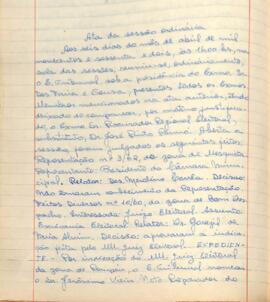 Ata da sessão ordinária
Aos seis dias do mês de abril de mil
novecentos e sessenta e dois, às 14,00 hs, na
sala das sessões, reuniu-se, ordinariamente,
o E. Tribunal, sob a presidência do Exmo. Sr.
Des. Faria e Sousa, presentes todos os Exmos.
Membros mencionados na ata anterior, tendo
deixado de comparecer, por motivo justificado,
o Exmo. Sr. Procurador Regional Eleitoral,
substituto, Dr. José Pinto Renno. Aberta a
sessão, foram julgados os seguintes feitos:
Representação nº 3/62, da zona de Mesquita
Representante: Presidente da Câmara Municipal
Relator: Des. Decisão:
Não tomaram conhecimento da Representação
Feitos Diversos nº 10/60, da zona de Bom Despacho.
Interessado: Juízo Eleitoral. Assunto:
Eleitoral. Relator: Dr.
Faria Alvim. Decisão: aprovaram a
feita pelo MM. Juiz Eleitoral. EXPEDIENTE
- Por indicação do MM. Juiz Eleitoral
da zona de, o E. Tribunal nomeou
o Sr. Jerônimo Vieira